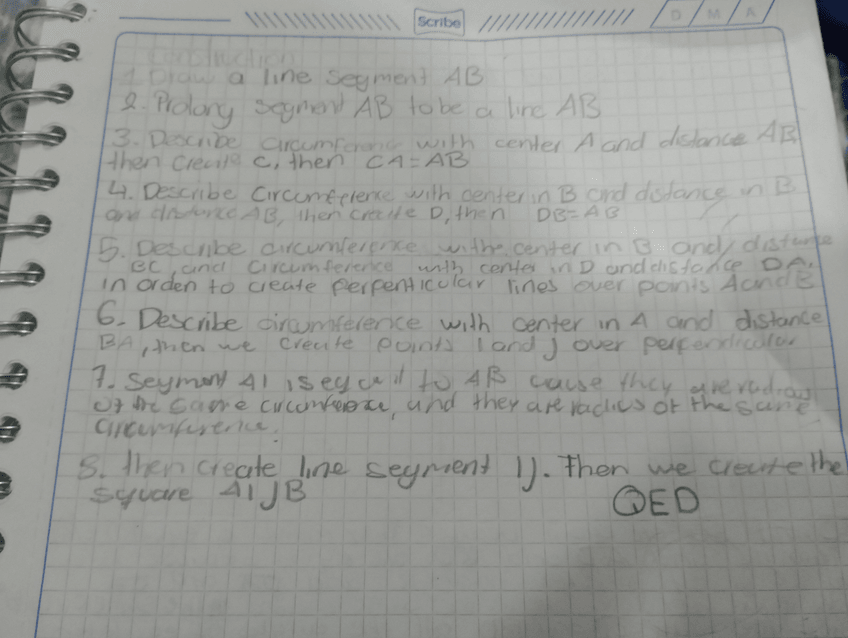 Scribe
D / M / A
Construction
1. Draw a line segment AB
2. Prolong segment AB to be a line AB
3. Describe circumference with center A and distance AB
then create C, then CA = AB
4. Describe circumference with center in B and distance in B
and distance AB, then create D, then DB = AB
5. Describe circumference withe center in B and distance
BC, and circumference with center in D and distance DA.
in orden to create perpenticular lines over points A and B
6. Describe circumference with center in A and distance
BA, then we create points I and J over perpendicular
7. Segment AI is equal to AB cause they are radious
of the same circumference, and they are radius of the same
circumference.
8. then create line segment IJ. Then we create the
square AIJB
QED